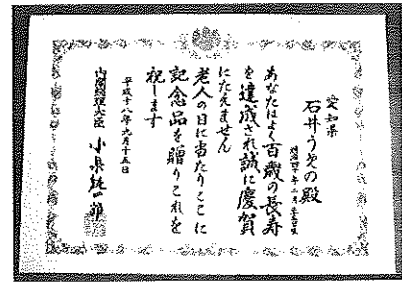 愛知県
石井うその殿
明治四十年二月
あなたはよく百歳の長寿
を達成され誠に慶賀
にたえません
老人の日に当たりここに
記念品を贈りこれを
祝します
平成十八年九月十五日
内閣総理大臣 小泉純一郎